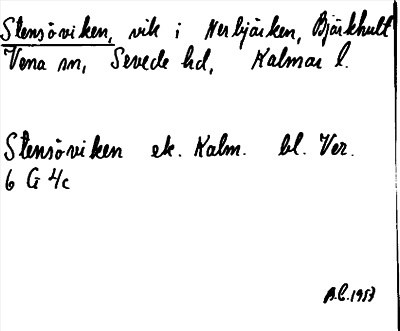 Stensöviken, vik i Nerbjärken, Bjärkhult
Vena sn, Sevede hd, Kalmar l.
Stensöviken ek. Kalm. bl. Ver.
6 G 4c
B.C. 1953